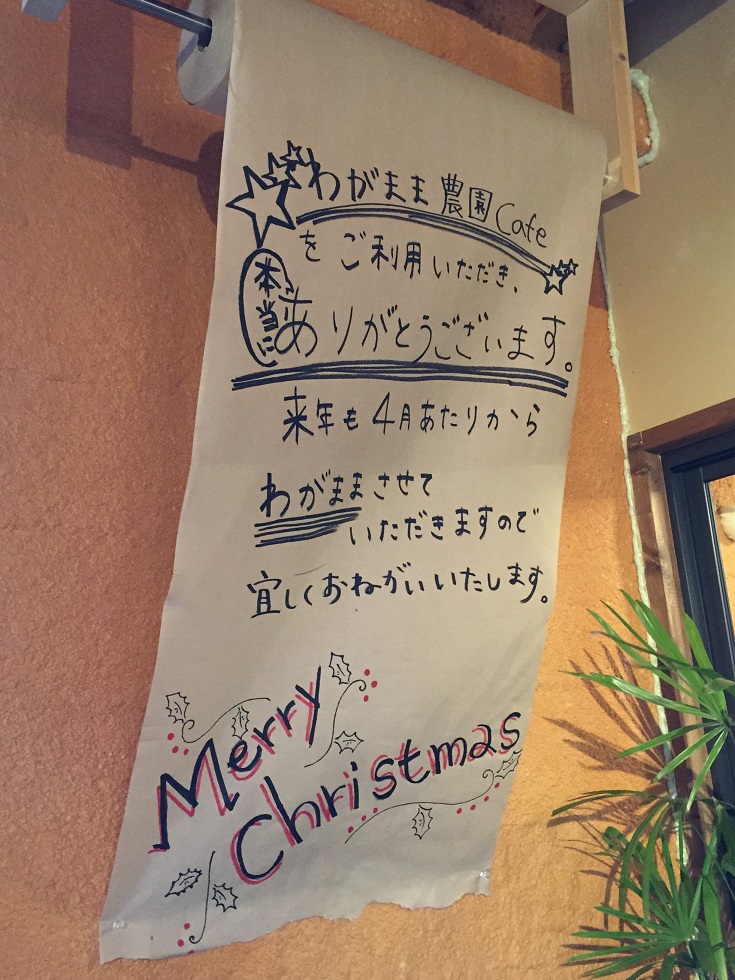 わがまま農園Cafe
をご利用いただき、
本当に
ありがとうございます。
来年も4月あたりから
わがままさせて
いただきますので
宜しくおねがいいたします。
Merry
Christmas